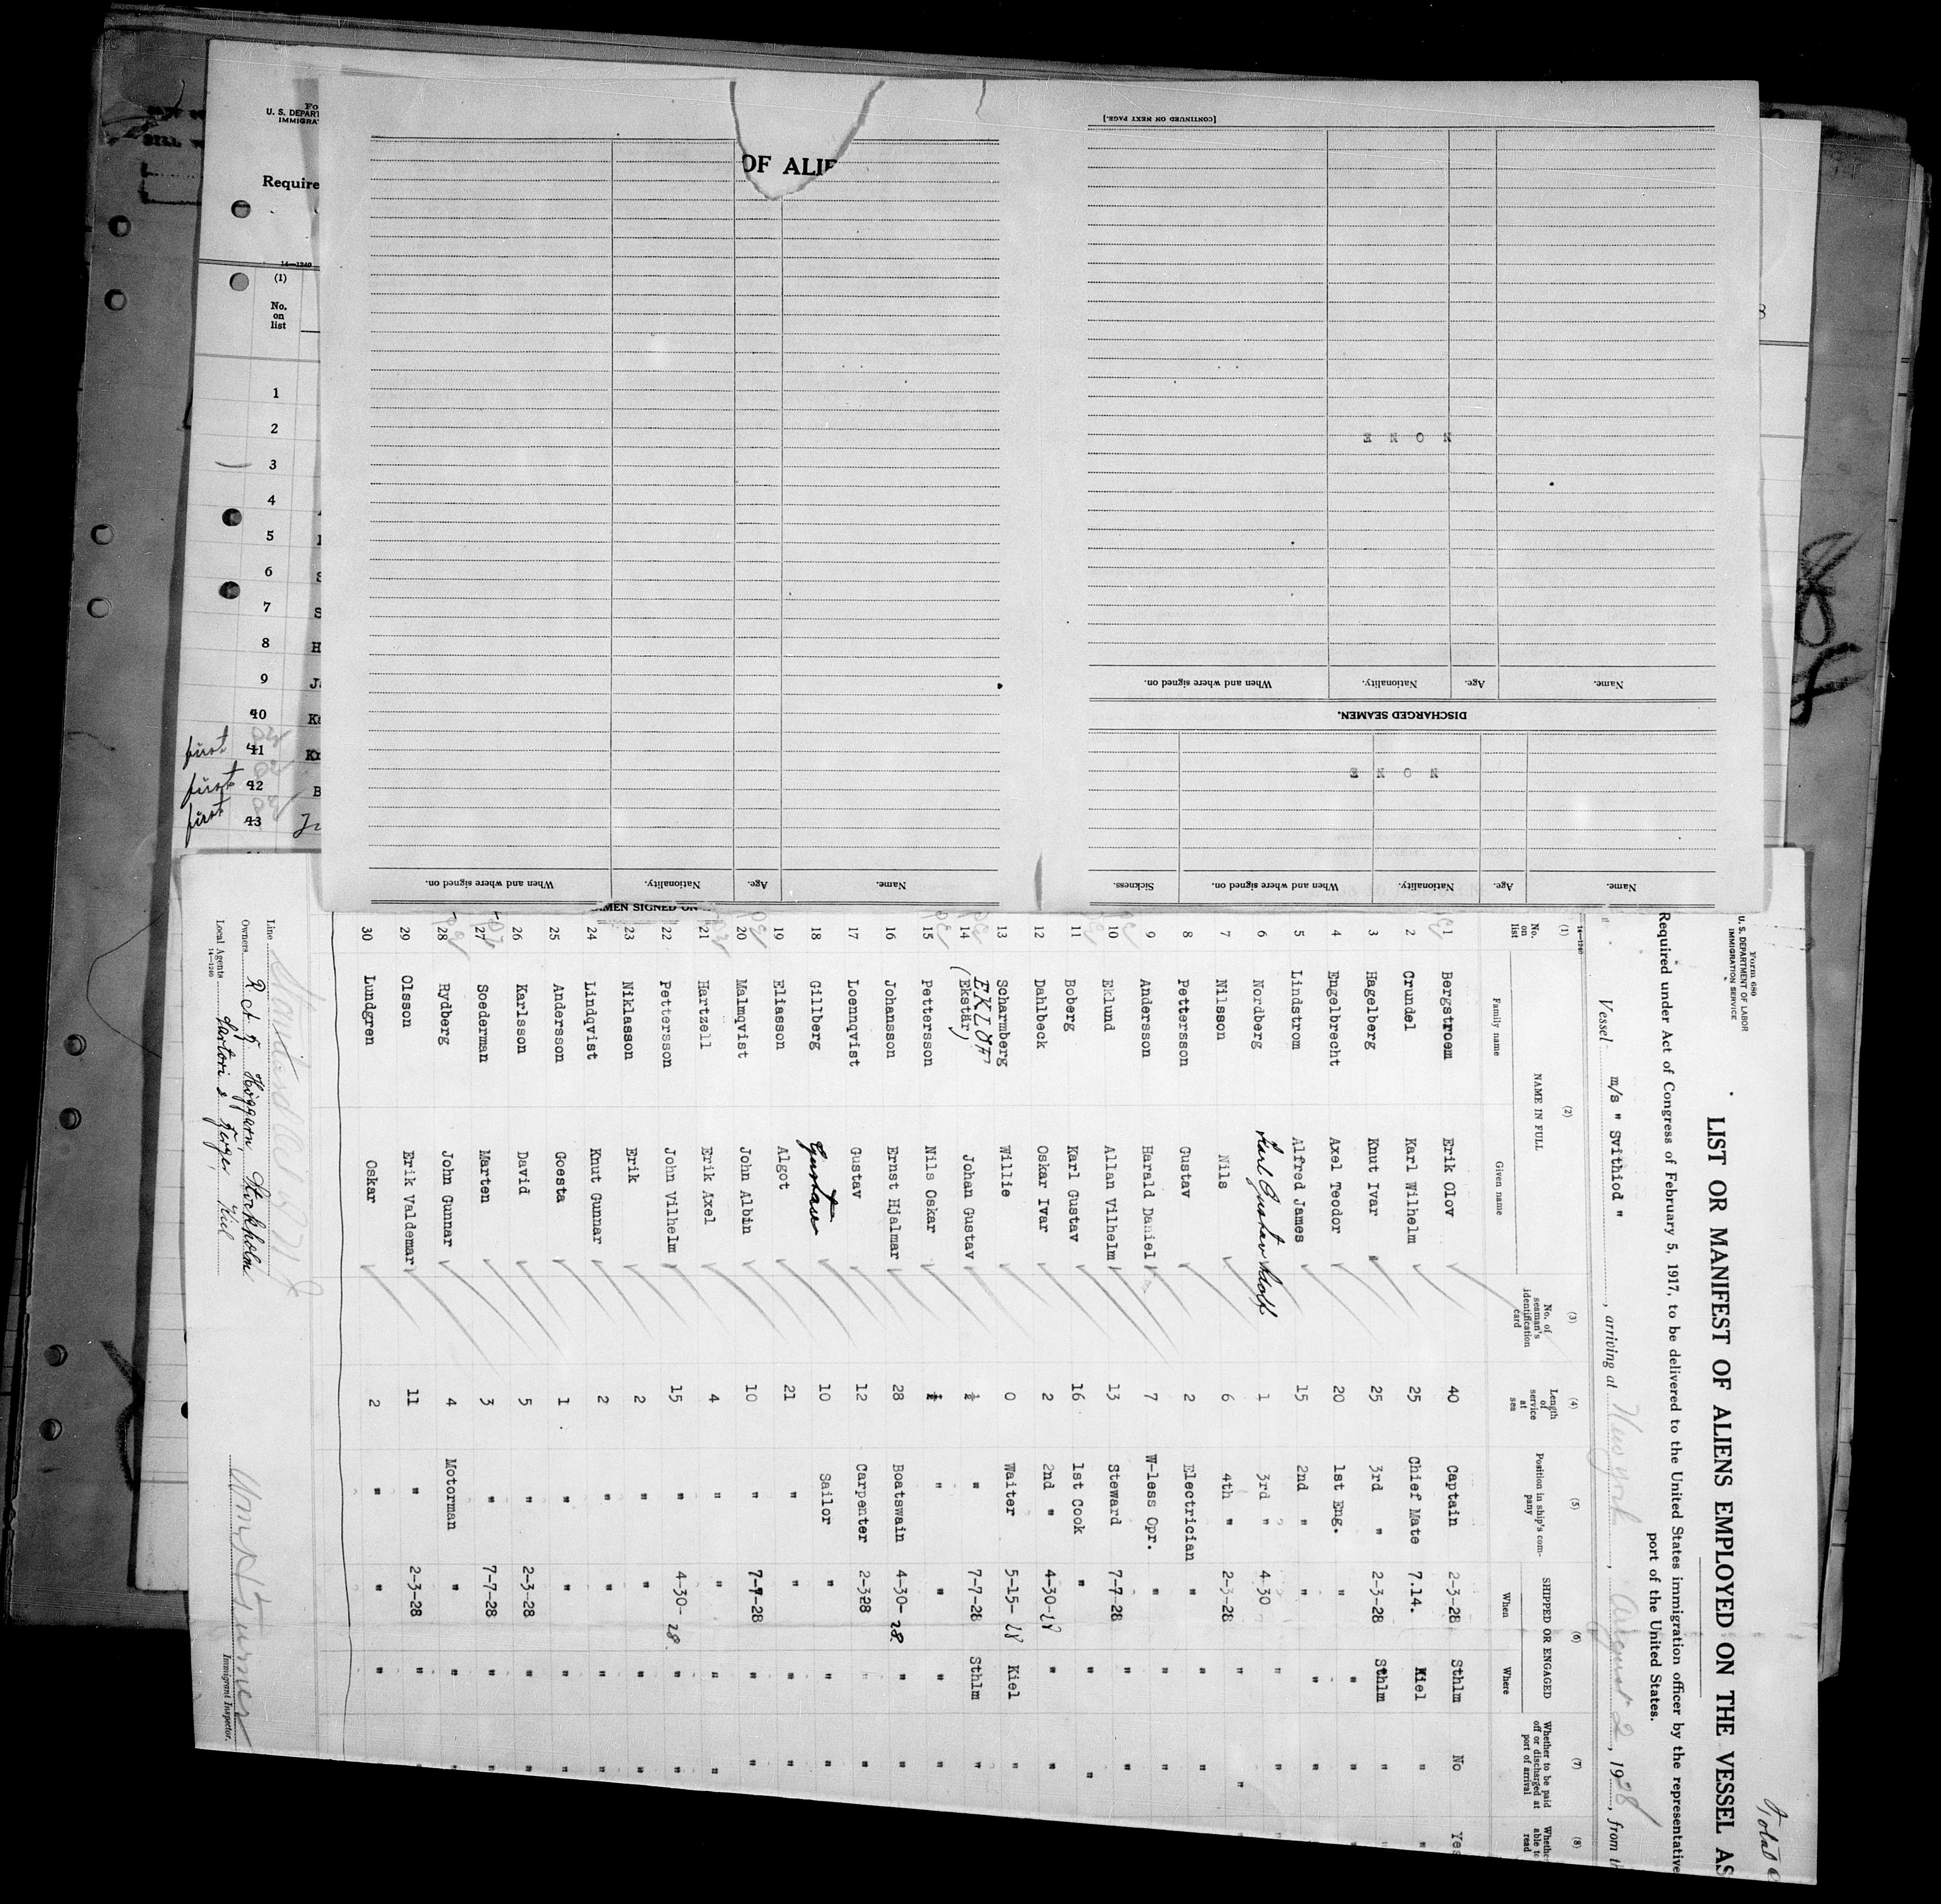 Form 680
U. S. DEPARTMENT OF LABOR
IMMIGRATION SERVICE
LIST OR MANIFEST OF ALIENS EMPLOYED ON THE VESSEL AS
Required under Act of Congress of February 5, 1917, to be delivered to the United States immigration officer by the representative
port of the United States.
Vessel m/s " Svithiod " , arriving at New york , August 2 , 1928 , from th
14—1240
(1) (2) (3) (4) (5) (6) (7) (8)
No. on list NAME IN FULL No. of seaman's identification card Length of service at sea Position in ship's company SHIPPED OR ENGAGED Whether to be paid off or discharged at port of arrival Whether able to read
Family name Given name When Where
1 Bergstroem Erik Olov 40 Captain 2-3-28 Sthlm No Yes
2 Crundel Karl Wilhelm 25 Chief Mate 7.14. Kiel " "
3 Hagelberg Knut Ivar 25 3rd " 2-3-28 Sthlm "
4 Engelbrecht Axel Teodor 20 1st Eng. " " "
5 Lindstrom Alfred James 15 2nd " " " "
6 Nordberg Karl Gustav Adolf 1 3rd " 4-30 "
7 Nilsson Nils 6 4th " 2-3-28 " "
8 Pettersson Gustav 2 Electrician " " "
9 Andersson Harald Daniel 7 W-less Opr. " " "
10 Eklund Allan Vilhelm 13 Steward 7-7-28 " "
11 Boberg Karl Gustav 16 1st Cook " " "
12 Dahlbeck Oskar Ivar 2 2nd " 4-30-28 " "
13 Scharmberg Willie 0 Waiter 5-15-28 Kiel "
14 EKLÖF (Ekstär) Johan Gustav ½ " 7-7-28 Sthlm "
15 Pettersson Nils Oskar " " " "
16 Johansson Ernst Hjalmar 28 Boatswain 4-30-28. " "
17 Loennqvist Gustav 12 Carpenter 2-3-28 " "
18 Gillberg Gustav 10 Sailor " " "
19 Eliasson Algot 21 " " " "
20 Malmqvist John Albin 10 " 7-7-28 " "
21 Hartzell Erik Axel 4 " " " "
22 Pettersson John Vilhelm 15 " 4-30-28. " "
23 Niklasson Erik 2 " " " "
24 Lindqvist Knut Gunnar 2 " " " "
25 Andersson Goesta 1 " " " "
26 Karlsson David 5 " 2-3-28 " "
27 Soederman Marten 3 " 7-7-28 " "
28 Rydberg John Gunnar 4 Motorman " " "
29 Olsson Erik Valdemar 11 " 2-3-28 " "
30 Lundgren Oskar 2 " " "
Line
Owners Stockholm
Local Agents Sartori & Berger, Kiel
14—1240
Immigrant Inspector.
[CONTINUED ON NEXT PAGE.]
Name. Age. Nationality. When and where signed on. Sickness.
N O N E
DISCHARGED SEAMEN.
Name. Age. Nationality. When and where signed on.
N O N E
MEN SIGNED ON
Name. Age. Nationality. When and where signed on.
OF ALIE
Fo
U. S. DEPART
IMMIGRA
Require
14—1240
(1)
No.
on
list
1
2
3
4
5
6
7
8 H
9
40
first 41
first 42 B
first 43